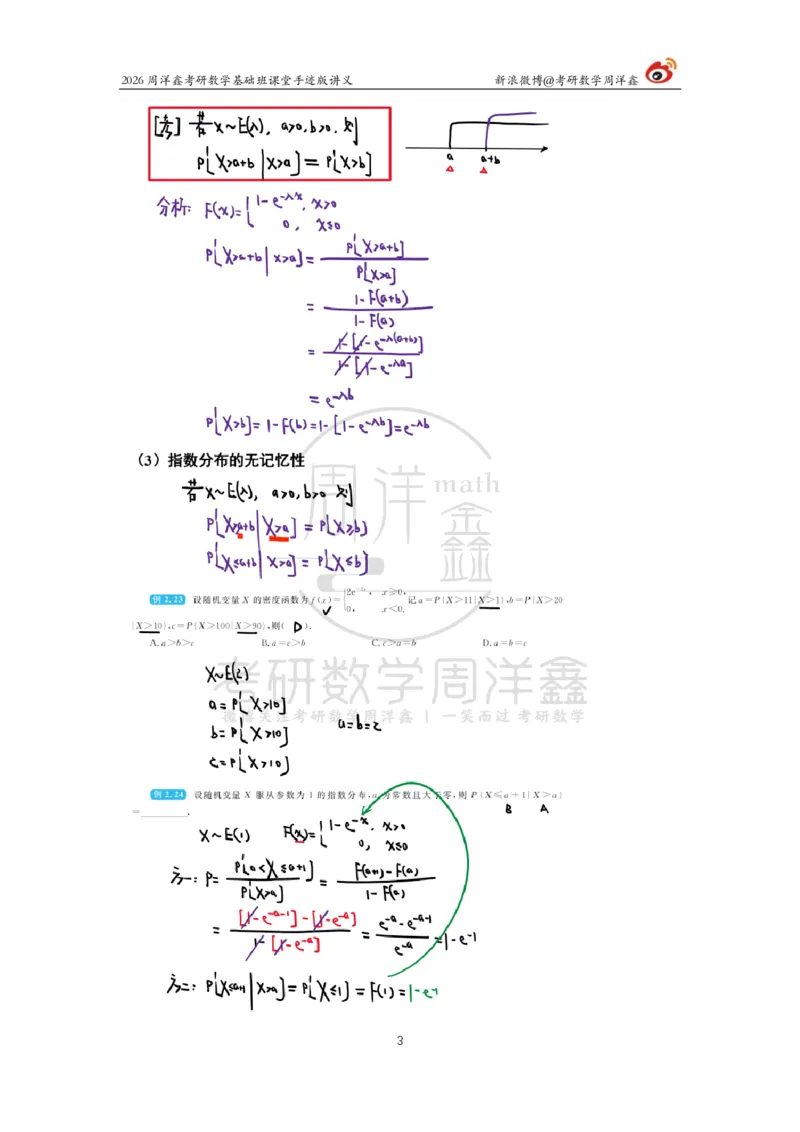 2026 周洋鑫考研数学基础班课堂手迹版讲义 新浪微博@考研数学周洋鑫
若 X~E(λ), a>0, b>0. 则
P{X>a+b|X>a}=P{X>b}
a a+b
分析: F(x)={1-e^{-λx}, x>0
0, x≤0
P{X>a+b|X>a}=P{X>a+b}/P{X>a}
=(1-F(a+b))/(1-F(a))
=(1-[1-e^{-λ(a+b)}])/(1-[1-e^{-λa}])
=e^{-λb}
P{X>b}=1-F(b)=1-[1-e^{-λb}]=e^{-λb}
（3）指数分布的无记忆性
若X~E(λ), a>0, b>0 则
P{X>a+b|X>a}=P{X>b}
P{X≤a+b|X>a}=P{X≤b}
周洋鑫 math
例 2.23 设随机变量 X 的密度函数为 f(x)={2e^{-2x}, x≥0, 0, x<0. 记 a=P{X>11|X>1},b=P{X>20
|X>10},c=P{X>100|X>90},则( D ).
A. a>b>c B. a=c>b C. c>a=b D. a=b=c
X~E(2)
考研数学周洋鑫
a=P{X>10}
微博关注考研数学周洋鑫 | 一笑而过 考研数学
b=P{X>10} a=b=c
c=P{X>10}
例 2.24 设随机变量 X 服从参数为 1 的指数分布,a 为常数且大于零,则 P{X≤a+1|X>a}
=________. B A
X~E(1) F(x)={1-e^{-x}, x>0
0, x≤0
方一: P=P{a<X≤a+1}/P{X>a}=(F(a+1)-F(a))/(1-F(a))
=([1-e^{-a-1}]-[1-e^{-a}])/(1-[1-e^{-a}])=(e^{-a}-e^{-a-1})/e^{-a}=1-e^{-1}
方二: P{X≤a+1|X>a}=P{X≤1}=F(1)=1-e^{-1}
3